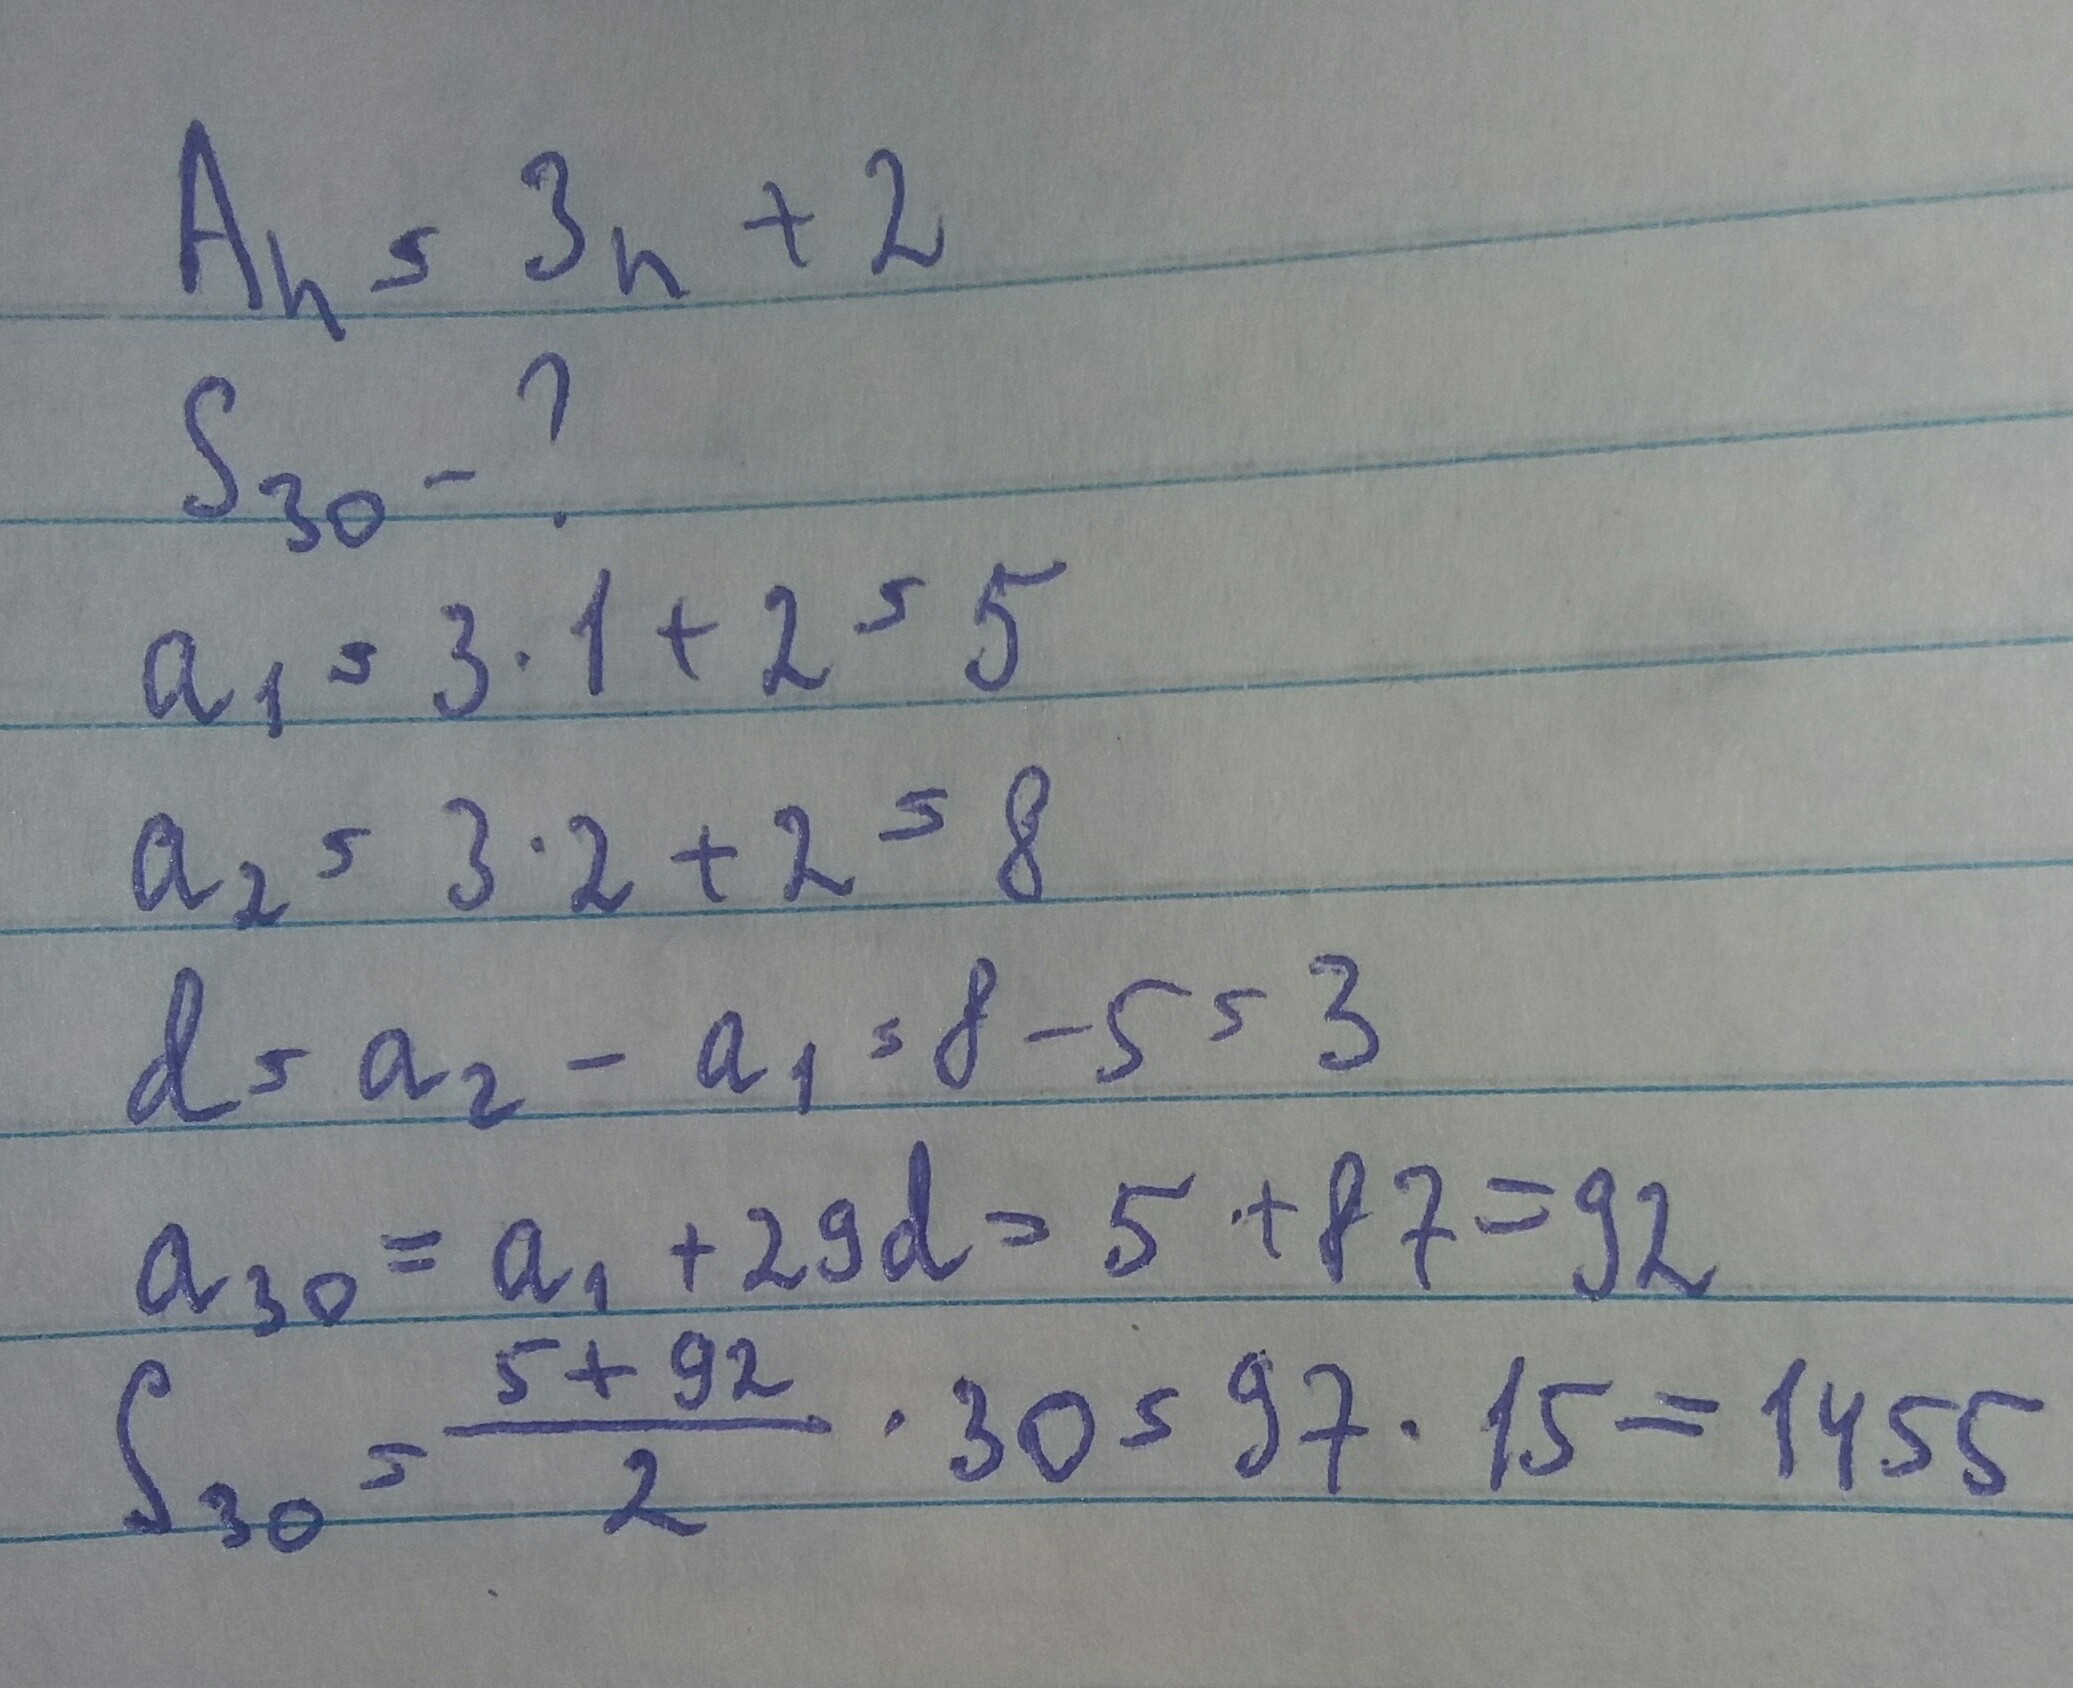 Aₙ = 3n + 2
S₃₀ - ?
a₁ = 3 · 1 + 2 = 5
a₂ = 3 · 2 + 2 = 8
d = a₂ - a₁ = 8 - 5 = 3
a₃₀ = a₁ + 29d = 5 + 87 = 92
S₃₀ = (5 + 92)/2 · 30 = 97 · 15 = 1455